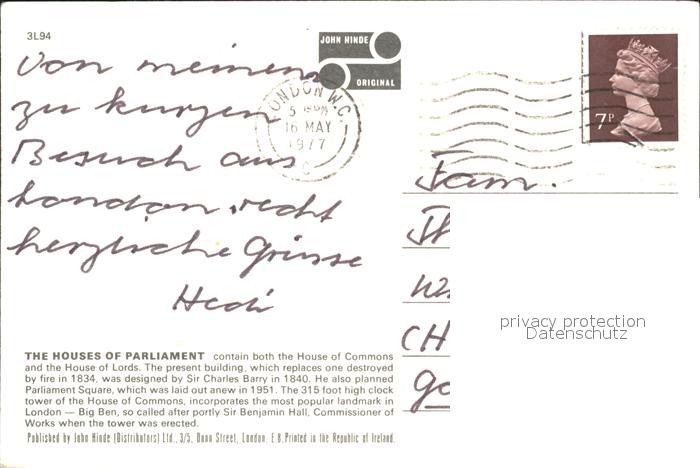 3L94
JOHN HINDE
ORIGINAL
Von meinem
zu kurzen
Besuch aus
London recht
herzliche Grüsse
Hedi
LONDON W.C.
16 MAY
1977
7P
Fam.
CH
THE HOUSES OF PARLIAMENT contain both the House of Commons
and the House of Lords. The present building, which replaces one destroyed
by fire in 1834, was designed by Sir Charles Barry in 1840. He also planned
Parliament Square, which was laid out anew in 1951. The 315 foot high clock
tower of the House of Commons, incorporates the most popular landmark in
London — Big Ben, so called after portly Sir Benjamin Hall, Commissioner of
Works when the tower was erected.
Published by John Hinde (Distributors) Ltd., 3/5, Dunn Street, London, E.8. Printed in the Republic of Ireland.
privacy protection
Datenschutz